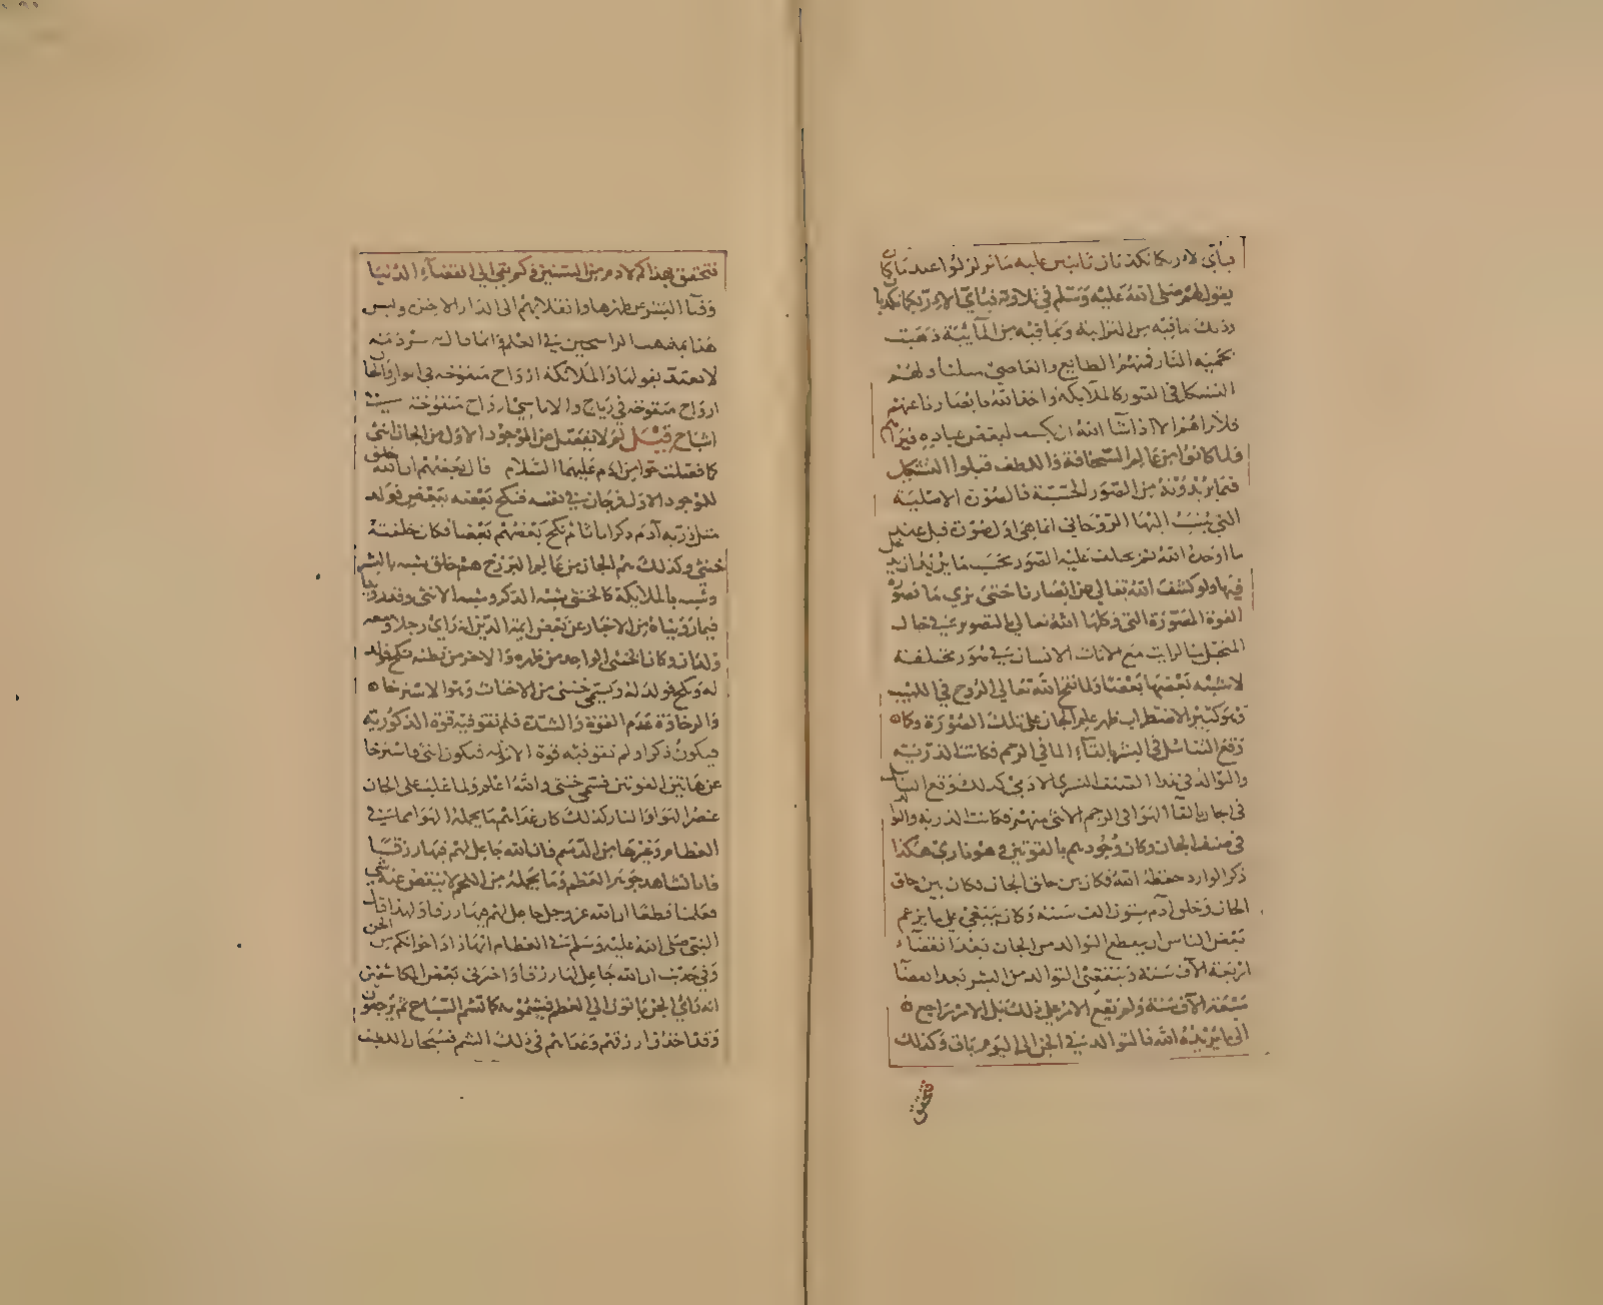 فبأي آلاء ربكما تكذبان ثابتين عليه ما تزلزلوا عند ما كان
يقول لهم صلى الله عليه وسلم في تلاوته فبأي آلاء ربكما تكذبا
وذلك بما فيه من الترابية وبما فيه من المائية ذهبت
بحمية النار فمنهم الطايع والعاصي مثلنا ولهم
التشكل في الصور كالملايكة واخذ الله بابصارنا عنهم
فلا نراهم الا اذا شا الله ان يكشف لبعض عباده فيراهم
فلما كانوا من عالم السخافة واللطف قبلوا التشكيل
فيما يريدونه من الصور الحسية فالصورة الاصلية
التي ينسب اليها الروحاني انما هي اول صورة قبل عند
ما اوجده الله ثم تختلف عليه الصور بحسب ما يريد ان يدخل
فيها ولو كشف الله تعالى عن ابصارنا حتى نرى ما تصوره
القوة المصورة التي وكلها الله تعالى بالتصوير في خيال
المتخيل منا لرايت مع الانات الانسان في صور مختلفة
لا يشبه بعضها بعضا ولما نفخ الله تعالى الروح في اللهيب
وهو كثير الاضطراب ظهر عالم الجان على تلك الصورة وكما
وقع التناسل في البشر بالقآء الما في الرحم فكانت الذرية
والتوالد في هذا الصنف البشري الادمي كذلك وقع التناسل
في الجان بالقآ الهوا في الرحم الانثى منهم فكانت الذرية والتوالد
في صنف الجان وكان وجودهم بالقوتين هو ناري هكذا
ذكر الوارد حفظه الله فكان بين خلق الجان
الجان وخلق آدم ستون الف سنة وكان ينبغي على ما يزعم
بعض الناس ان ينقطع التوالد من الجان بعد انقضآء
اربعة الآف سنة وينقطع التوالد من البشر بعد انقضآ
سبعة الآف سنة ولم يقع الامر على ذلك بل الامر راجع
الى ما يريده الله فالتوالد في الجن الى اليوم باق وكذلك
فتحقق
فتحقق بهذا كم لآدم من السنين وكم بقي الى انقضآء الدنيا
وفنآ البشر عن ظهرها وانقلابهم الى الدار الاخرة وليس
هذا بمذهب الراسخين في العلم وانما قال به شرذمة
لا يعتد بقولها والملائكة ارواح منفوخة في انوار والجان
ارواح منفوخة في رياح والاناسي ارواح منفوخة في
اشباح قيل لم لا يفصل من الموجود الاول من الجان انثى
كما فصلت حوا من ادم عليهما السلام قال بعضهم ان الله خلق
للموجود الاول فرجا في نفسه فنكح بعضه ببعض فولد
مثل ذرية آدم ذكرانا واناثا ثم نكح بعضهم بعضا فكان خلقته
خنثى وكذلك هم الجان من عالم البرزخ هم خلق شبه بالبشر
وشبه بالملايكة كالخنثى يشبه الذكر ويشبه الانثى وقد روينا
فيما رويناه من الاخبار عن بعض ايمة الدين انه راى رجلا ومعه
ولدان وكان الخنثى الواحد من ظهره والآخر من بطنه نكح فولد
له ونكح فولد له ويسمى خنثى من الانخناث وهو الاسترخا
والرخاوة عدم القوة والشدة فلم تقو فيه قوة الذكورية
فيكون ذكرا ولم تقو فيه قوة الانوثة فيكون انثى فاسترخا
عن هاتين القوتين فسمي خنثى والله اعلم ولما غلب على الجان
عنصر الهوا والنار كذلك كان غذاؤهم ما يحمله الهوا مما في
العظام وغيرها من الدسم فان الله جاعل لهم فيها رزقا
فانا نشاهد جوهر العظم وما يحمله من اللحم لا ينقص عنه شي
فعلمنا قطعا ان الله عز وجل جاعل لهم فيها رزقا ولهذا قال
النبي صلى الله عليه وسلم في العظام انها زاد اخوانكم من الجن
وفي حديث ان الله جاعل لنا رزقا واخبرني بعض المكاشفين
انه راى الجن ياتون الى العظم فيشمونه كما تشم السباع ثم يرجعون
وقد اخذوا رزقهم وغذاؤهم في ذلك الشم فسبحان اللطيف